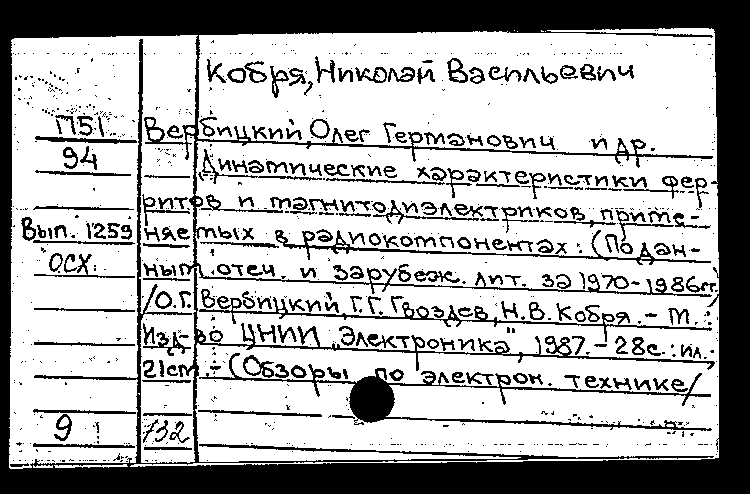 Кобря, Николай Васильевич
П51 Вербицкий, Олег Германович и др.
94 Динамические характеристики фер-
ритов и магнитодиэлектриков, приме-
Вып. 1259 няемых в радиокомпонентах: (По дан-
ОСХ. ным отеч. и зарубеж. лит. за 1970-1986гг.)
/О.Г. Вербицкий, Г.Г. Гвоздев, Н.В. Кобря. - М.:
Изд-во ЦНИИ „Электроника", 1987. - 28с.: ил.;
21см. - (Обзоры по электрон. технике/
9 132